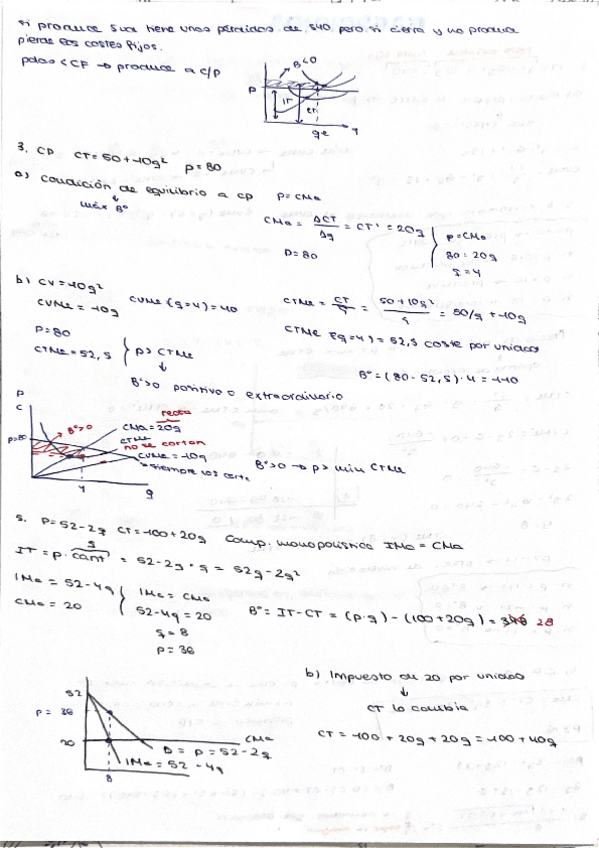 si produce 5ud tiene unas pérdidas de 540 pero si cierra y no produce
pierde los costes fijos.
pdas < CF → produce a c/p
B<0
P
IT
CT
qe
q
3. CP CT = 50 + 10q² p = 80
a) condición de equilibrio a cp p = CMa
↓
máx Bº
CMa = ΔCT/Δq = CT' = 20q
p = 80
p = CMa
80 = 20q
q = 4
b) CV = 10q²
CVMe = 10q CVMe (q=4) = 40
CTMe = CT/q = 50 + 10q²/q = 50/q + 10q
CTMe (q=4) = 52,5 coste por unidad
p = 80
CTMe = 52,5
p > CTMe
↓
Bº>0 positivo o extraordinario
Bº = (80 - 52,5) · 4 = 110
P
C
p=80
Bº>0
recta
CMa = 20q
CTMe
no se cortan
CVMe = 10q
siempre los corta
4
q
Bº>0 → p > min CTMe
5. P = 52 - 2q CT = 100 + 20q Comp. monopolística IMa = CMa
q
IT = p · cant = 52 - 2q · q = 52q - 2q²
IMa = 52 - 4q
CMa = 20
IMa = CMa
52 - 4q = 20
q = 8
p = 36
Bº = IT - CT = (p · q) - (100 + 20q) = 28
52
p = 36
20
8
CMa
D = p = 52 - 2q
IMa = 52 - 4q
b) Impuesto de 20 por unidad
↓
CT lo cambia
CT = 100 + 20q + 20q = 100 + 40q